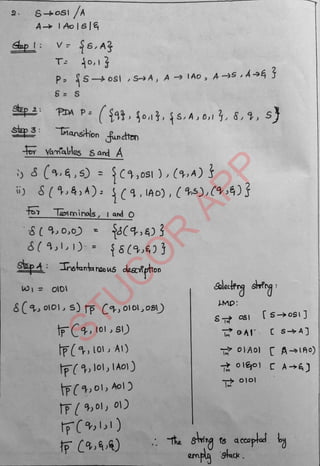 2. S→0S1 / A
A→ 1A0 | S | ε
Step 1 : V = {S, A}
T = {0, 1}
P = {S → 0S1 , S→A , A → 1A0 , A→S , A→ε }
S = S
Step 2 : PDA P = ( {q}, {0,1}, {S, A, 0, 1}, δ, q, S }
Step 3 : Transition function
For Variables S and A
i) δ (q, ε, S) = {(q, 0S1), (q, A)}
ii) δ (q, ε, A) = {(q, 1A0), (q, S), (q, ε)}
For Terminals, 1 and 0
δ (q, 0, 0) = {δ(q, ε)}
δ (q, 1, 1) = {δ(q, ε)}
Step 4 : Instantaneous description
W1 = 0101
δ (q, 0101, S) ⊢P (q, 0101, 0S1)
⊢P (q, 101, S1)
⊢P (q, 101, A1)
⊢P (q, 101, 1A01)
⊢P (q, 01, A01)
⊢P (q, 01, 01)
⊢P (q, 1, 1)
⊢P (q, ε, ε)
Selecting string :
LMD:
S ⇒lm 0S1 [S→0S1]
⇒lm 0A1 [S→A]
⇒lm 01A01 [A→1A0]
⇒lm 01ε01 [A→ε]
⇒lm 0101
∴ The string is accepted by
empty stack.
STUCOR APP